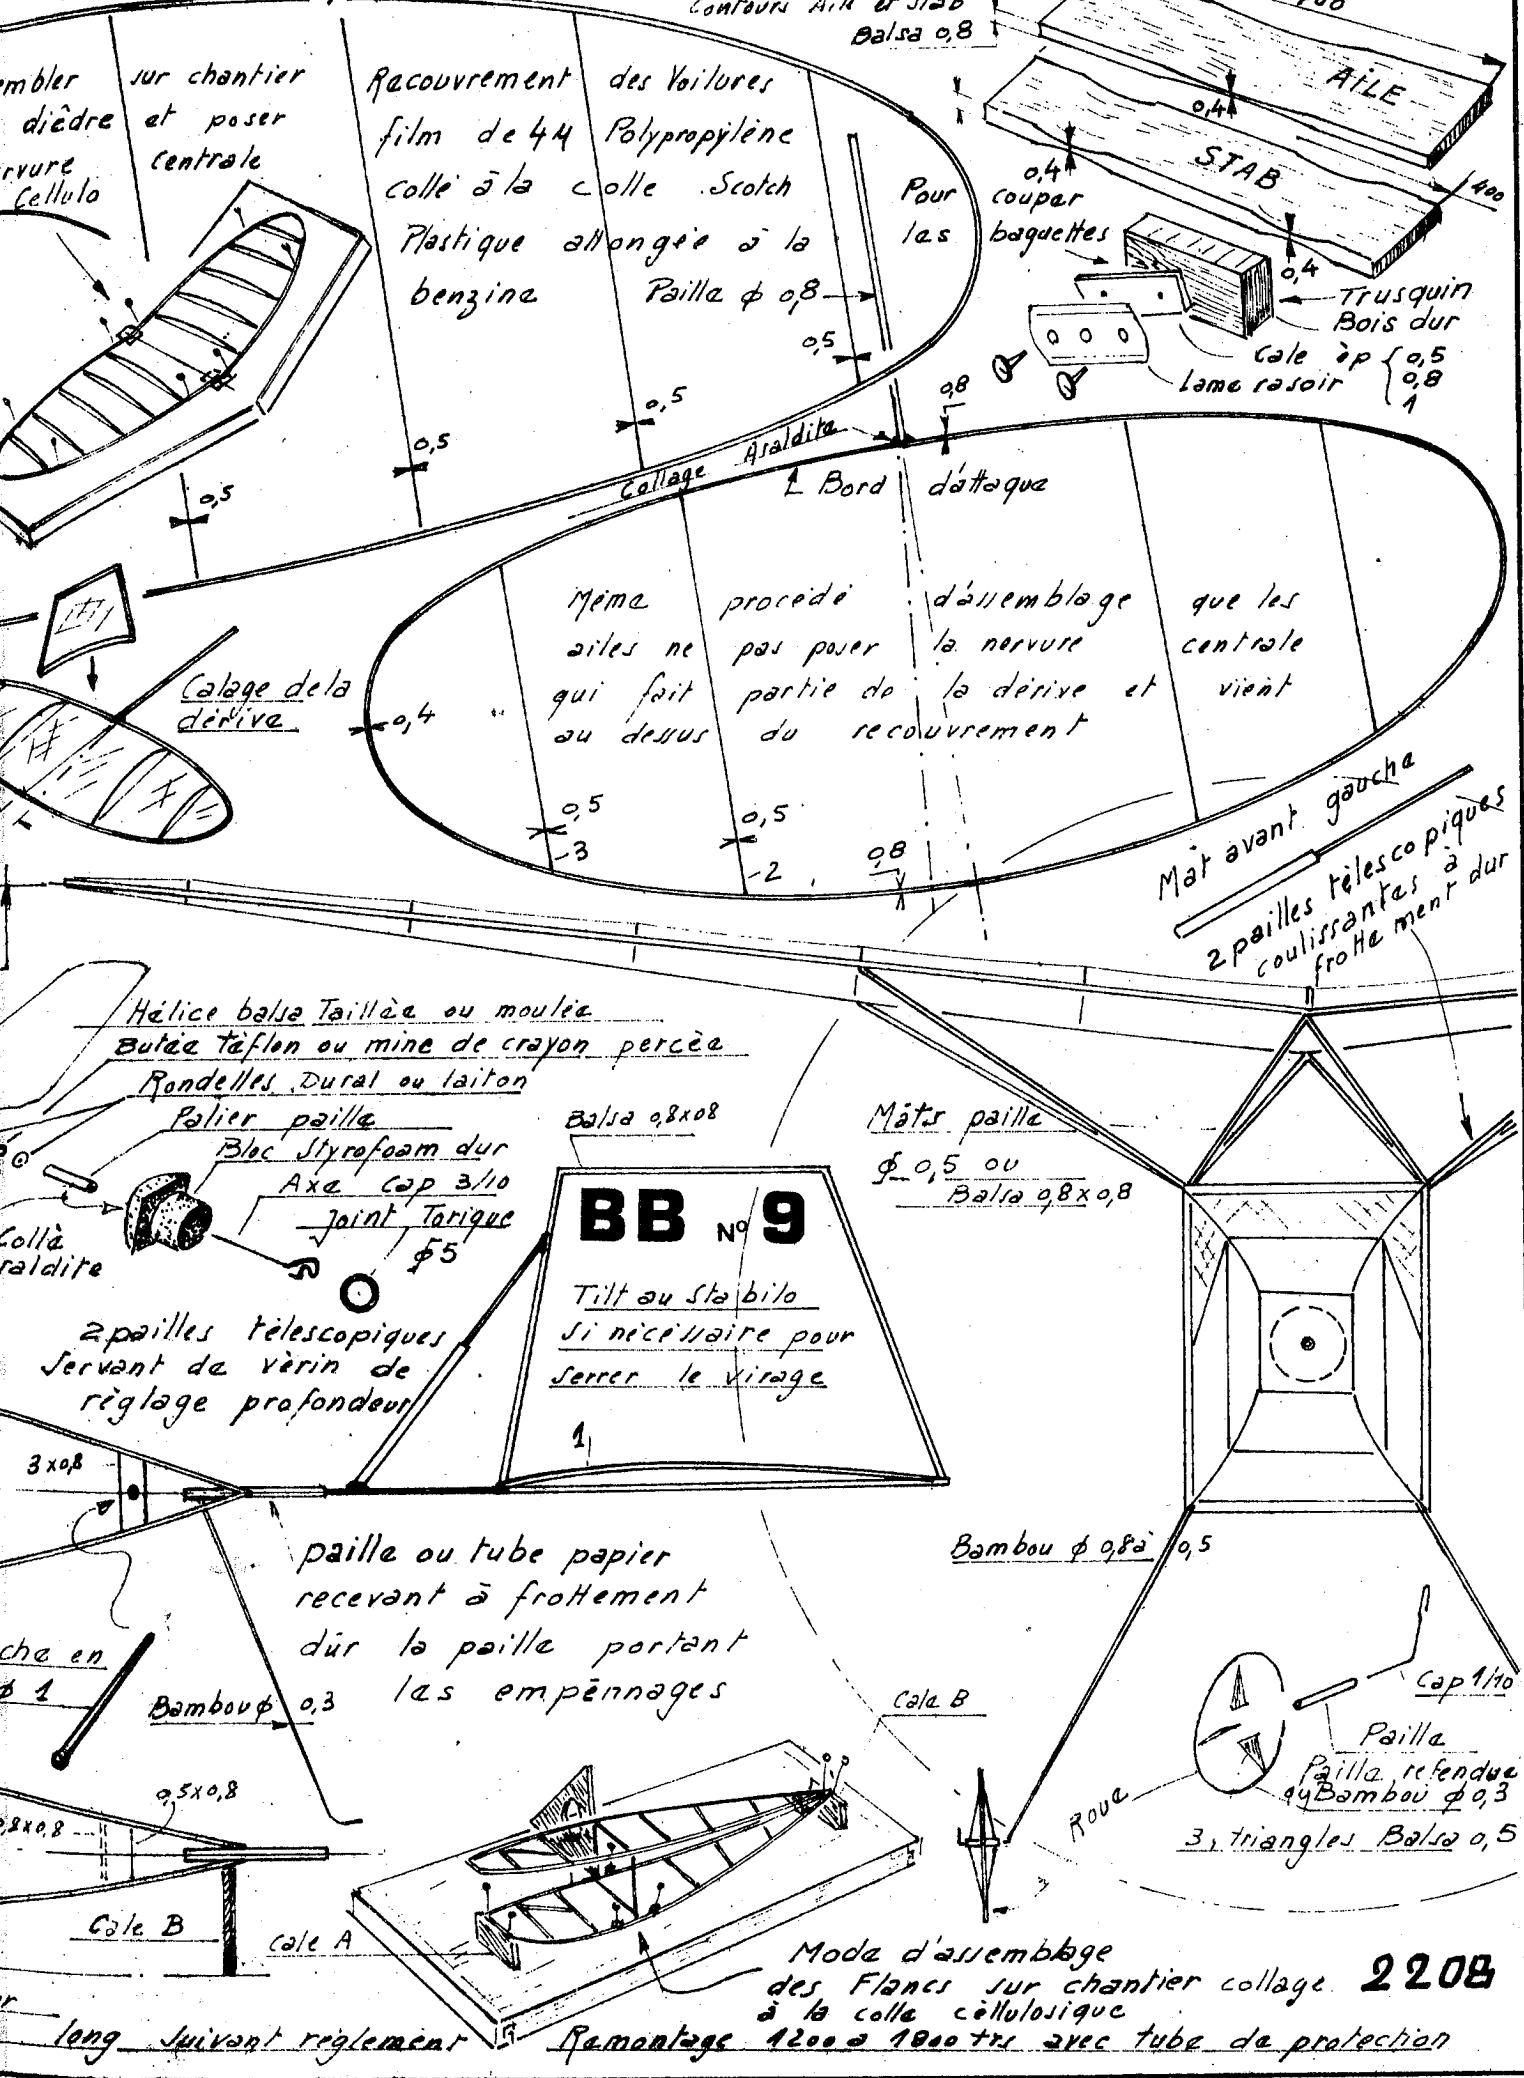 Contours Aile et Stab
Balsa 0,8
AILE
0,4
STAB
0,4
400
0,4
sur chantier
diêdre et poser
centrale
Cellulo
Racouvrement des Voilures
film de 4µ Polypropylène
collé à la colle Scotch
Plastique allongée à la
benzine
Paille ϕ 0,8
Pour couper
les baguettes
Trusquin
Bois dur
Cale èp { 0,5
0,8
1
lame rasoir
0,5
0,5
0,5
0,5
0,8
Collage Araldite
Bord d'attaque
Même procédé d'assemblage que les
ailes ne pas poser la nervure centrale
qui fait partie de la dérive et vient
au dessus du recouvrement
Calage de la
dérive
0,4
0,5
-3
0,5
-2
0,8
Mât avant gauche
2 pailles télescopiques
coulissantes à
frottement dur
Hélice balsa Taillée ou moulée
Butée Téflon ou mine de crayon percée
Rondelles Dural ou laiton
Palier paille
Bloc Styrofoam dur
Axe cap 3/10
Joint Torique
ϕ 5
Collè
raldite
Balsa 0,8x08
Mâts paille
ϕ 0,5 ou
Balsa 0,8x0,8
BB N° 9
Tilt au Stabilo
si nécéssaire pour
serrer le virage
1
2 pailles télescopiques
servant de vèrin de
règlage profondeur
3x0,8
paille ou tube papier
recevant à frottement
dûr la paille portant
les empênnages
Bambou ϕ 0,8à 0,5
che en
ϕ 1
Bambou ϕ 0,3
0,5x0,8
0,8x0,8
Cale B
Cale A
Cale B
Roue
Cap 1/10
Paille
Paille refendue
ou Bambou ϕ 0,3
3 triangles Balsa 0,5
Mode d'assemblage
des Flancs sur chantier collage
à la colle cèllulosique
2208
long suivant règlement
Remontage 1200 à 1800 trs avec tube de protection